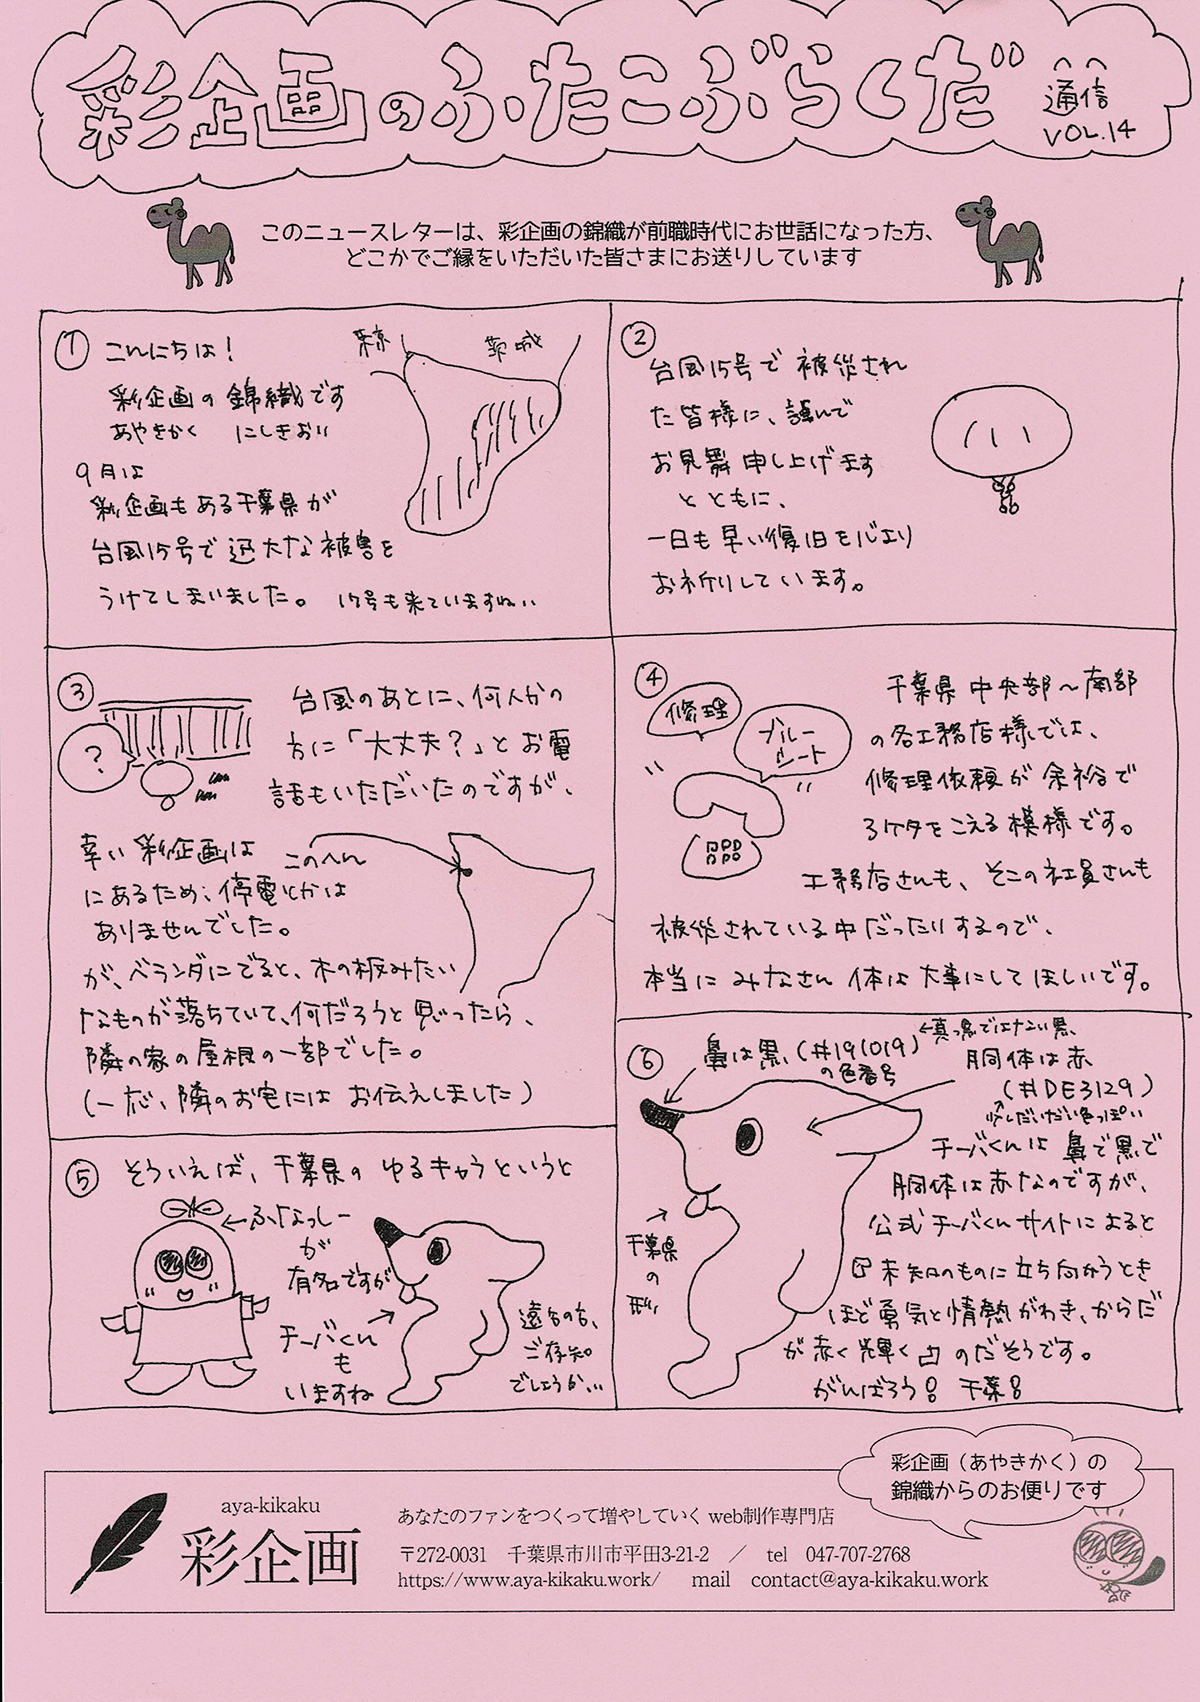 彩企画のふたこぶらくだ
通信
VOL.14
このニュースレターは、彩企画の錦織が前職時代にお世話になった方、
どこかでご縁をいただいた皆さまにお送りしています
①
こんにちは!
彩企画の錦織です
あやきかく にしきおり
9月は
彩企画もある千葉県が
台風15号で甚大な被害を
うけてしまいました。 17号も来ていますね…
東京
茨城
②
台風15号で被災され
た皆様に、謹んで
お見舞申し上げます
とともに、
一日も早い復旧を心より
お祈りしています。
③
?
台風のあとに、何人かの
方に「大丈夫?」とお電
話もいただいたのですが、
幸い彩企画は
このへん
にあるため、停電とかは
ありませんでした。
が、ベランダにでると、木の板みたい
なものが落ちていて、何だろうと思ったら、
隣の家の屋根の一部でした。
(一応、隣のお宅にはお伝えしました)
④
修理
ブルー
シート
千葉県中央部〜南部
の各工務店様では、
修理依頼が余裕で
3ケタをこえる模様です。
工務店さんも、そこの社員さんも
被災されている中だったりするので、
本当にみなさん体は大事にしてほしいです。
⑤
そういえば、千葉県のゆるキャラというと
←ふなっしー
が
有名ですが
チーバくん
も
いますね
遠方の方、
ご存知
でしょうか…
⑥
鼻は黒(#191019)
の色番号
←真っ黒ではない黒、
胴体は赤
(#DE3129)
少しだいだい色っぽい
チーバくんは鼻で黒で
胴体は赤なのですが、
公式チーバくんサイトによると
『未知のものに立ち向かうとき
ほど勇気と情熱がわき、からだ
が赤く輝く』のだそうです。
がんばろう!千葉!
千葉県
の
形
彩企画(あやきかく)の
錦織からのお便りです
aya-kikaku
彩企画
あなたのファンをつくって増やしていくweb制作専門店
〒272-0031 千葉県市川市平田3-21-2 / tel 047-707-2768
https://www.aya-kikaku.work/ mail contact@aya-kikaku.work